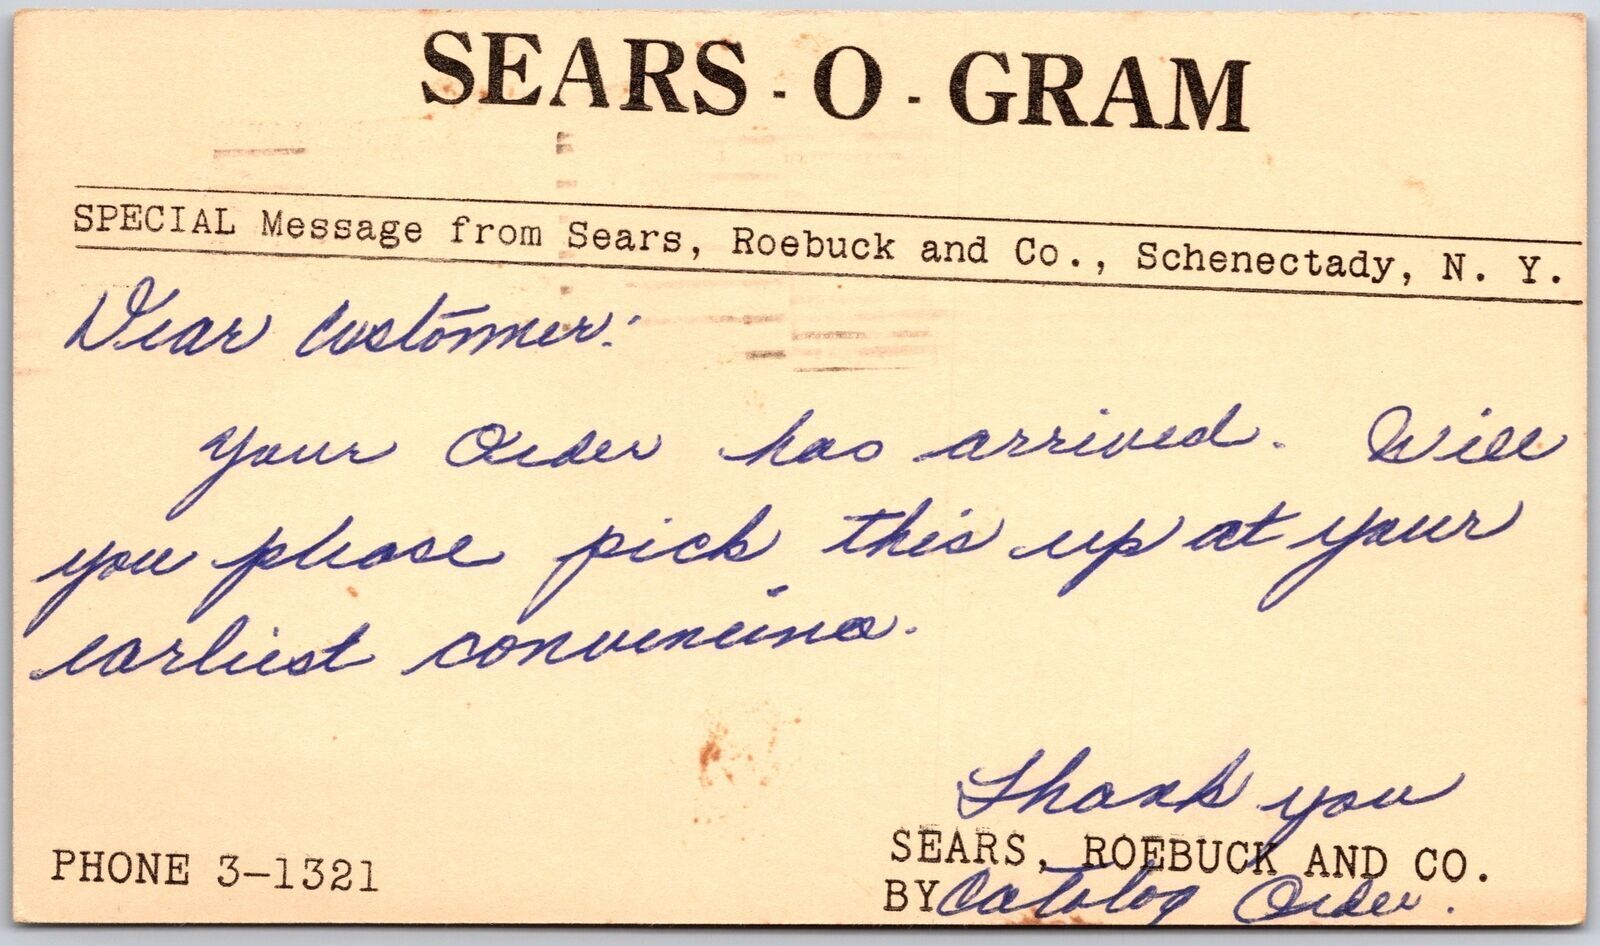 SEARS - O - GRAM
SPECIAL Message from Sears, Roebuck and Co., Schenectady, N. Y.
Dear Customer:
Your Order has arrived. Will
you please pick this up at your
earliest convenience.
Thank you
SEARS, ROEBUCK AND CO.
PHONE 3-1321
BY Catalog Order.